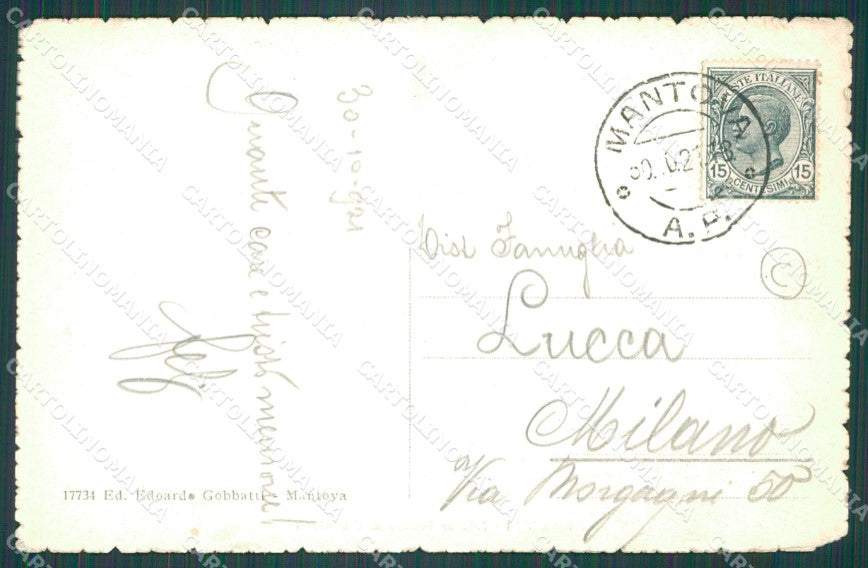 30-10-921
Quante care e tristi memorie!
17734 Ed. Edoardo Gobbatti - Mantova
POSTE ITALIANE
15 CENTESIMI 15
MANTOVA
30. 10.21 18
A. P.
C
Dist Famiglia
Lucca
Milano
Via Morgagni 50
CARTOLINOMANIA